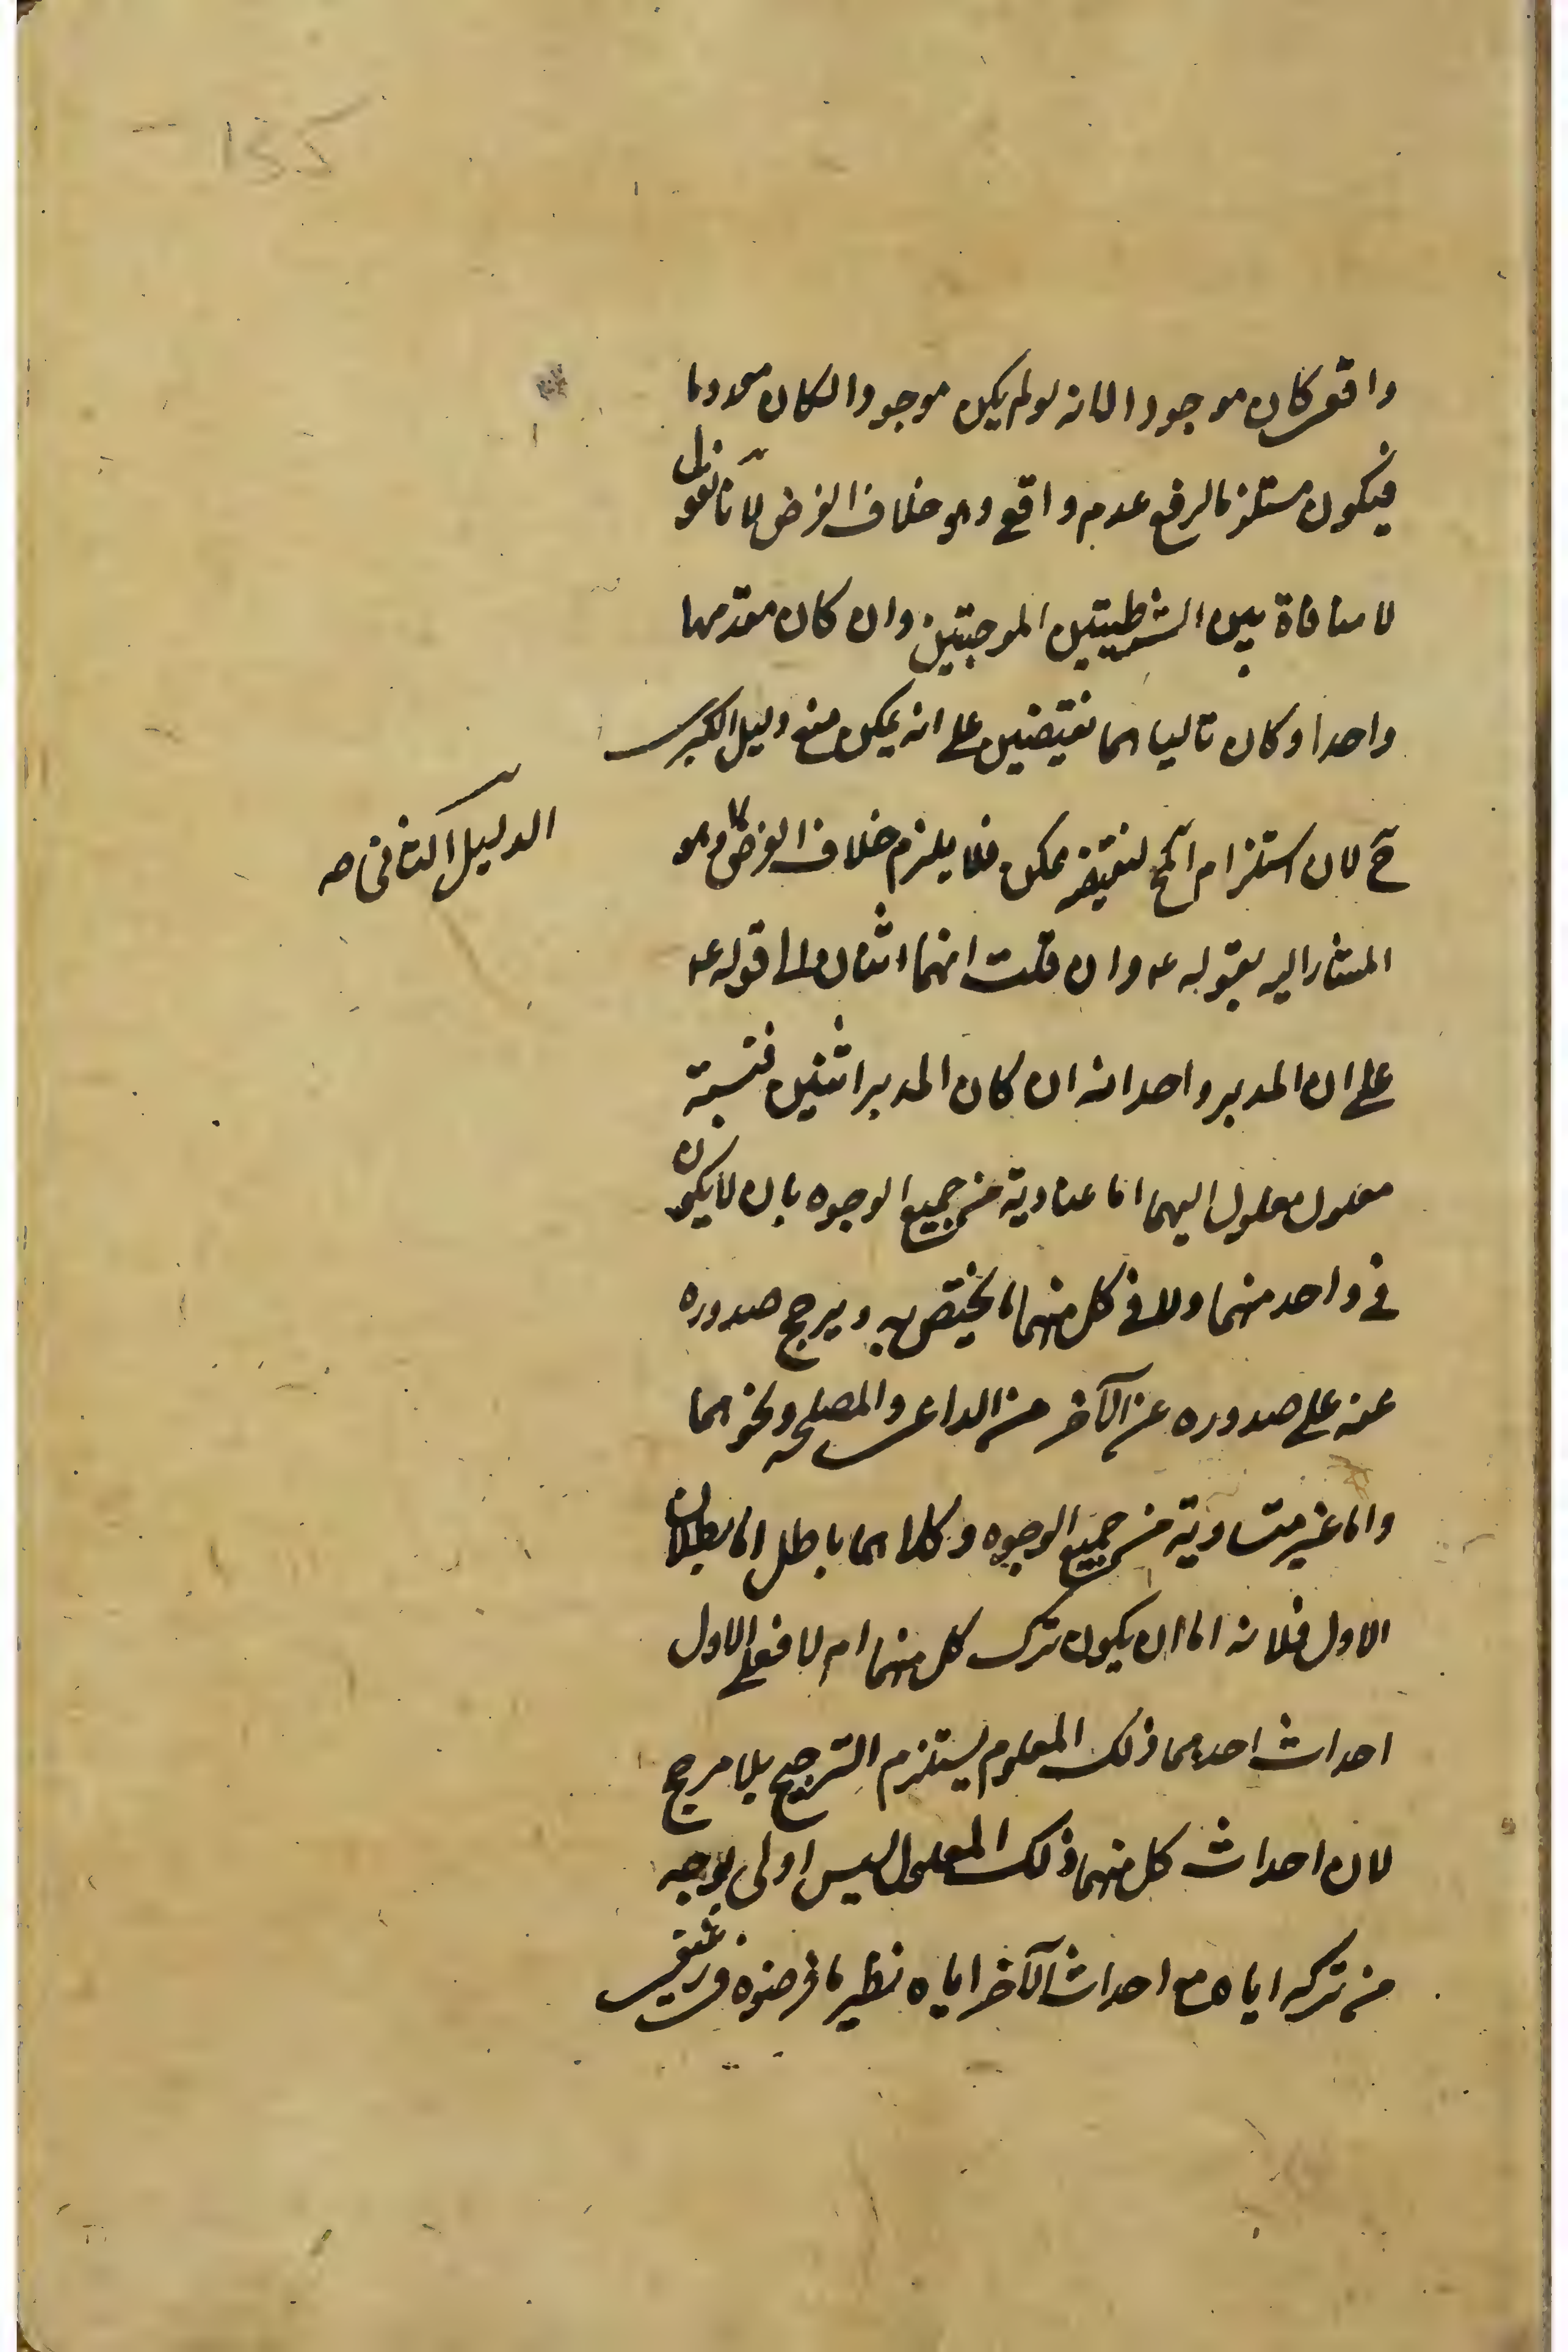 واقعی کان موجودا لانه لو لم یکن موجودا لکان معدوما
فیکون مستلزما لرفع عدم واقع وهو خلاف الفرض لانا نقول
لا منافاة بین الشرطیتین الموجبتین وان کان مقدمهما
واحدا وکان تالیاهما نقیضین علی انه یمکن منع دلیل الکبری
ح لان استلزام المح لنقیضه ممکن فلا یلزم خلاف الفرض وهو
الدلیل الثانی صه
المشار الیه بقوله ع وان قلت انهما اثنان الی قوله ع
علی ان المدبر واحد انه ان کان المدبر اثنین فنسبة
معلول معلول الیهما اما متساویة من جمیع الوجوه بان لا یکون
فی واحد منهما ولا فی کل منهما ما یختص به ویرجح صدوره
عنه علی صدوره عن الآخر من الداعی والمصلحه ونحوهما
واما غیر متساویة من جمیع الوجوه وکلاهما باطل اما بطلان
الاول فلانه اما ان یکون ترک کل منهما ام لا فعلی الاول
احداث احدهما ذلک المعلوم یستلزم الترجیح بلا مرجح
لان احداث کل منهما ذلک المعلول لیس اولی بوجه
من ترکه ایاه مع احداث الآخر ایاه نظیر ما فرضوه فی